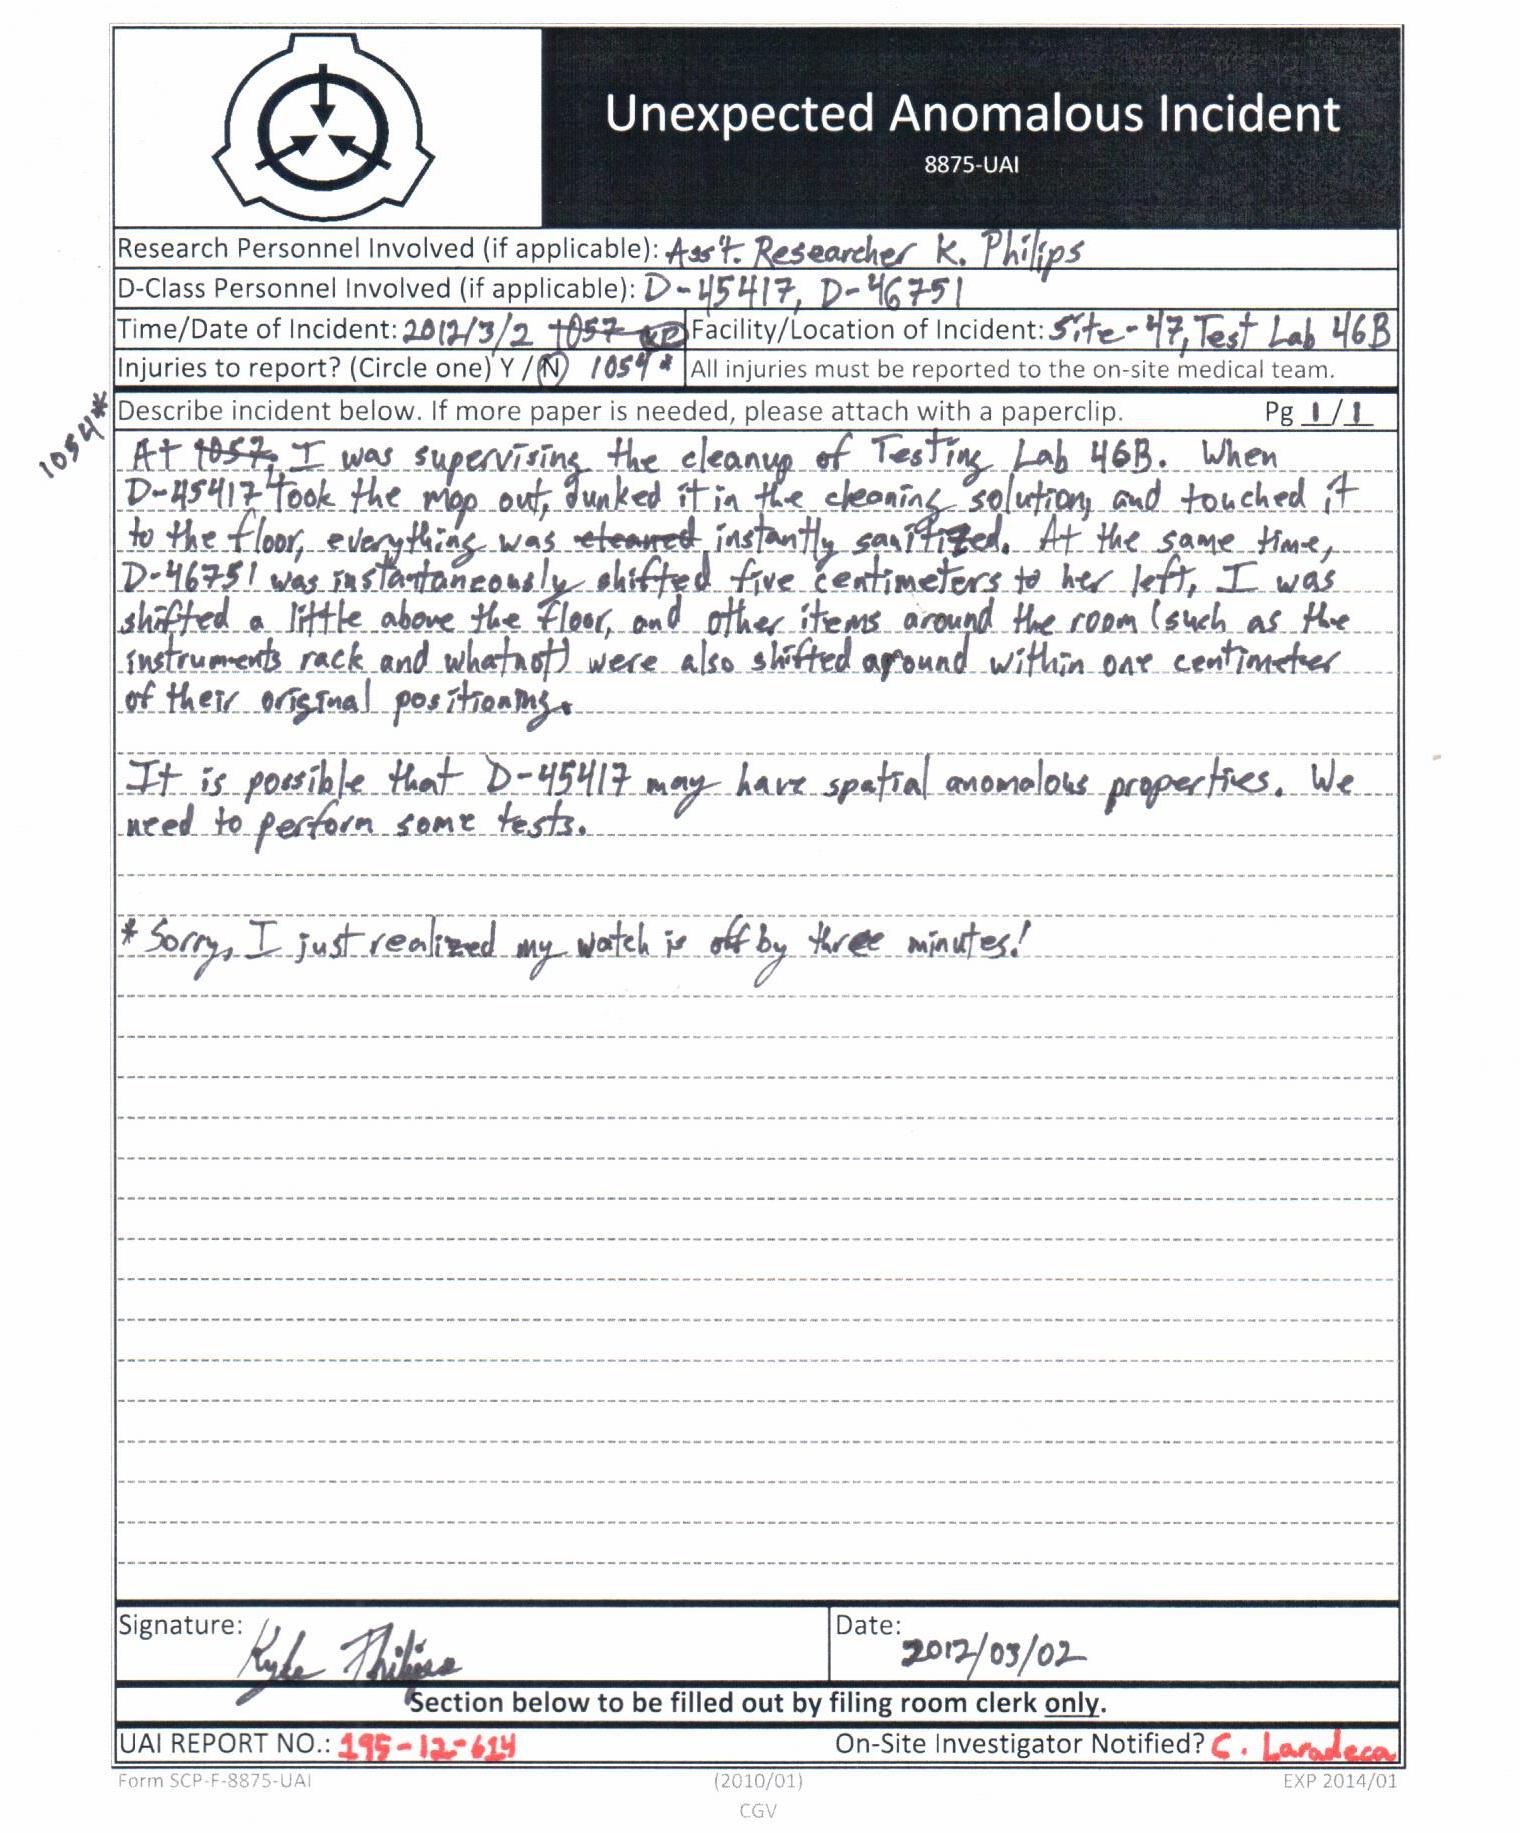 Unexpected Anomalous Incident
8875-UAI
Research Personnel Involved (if applicable): Ass't. Researcher K. Philips
D-Class Personnel Involved (if applicable): D-45417, D-46751
Time/Date of Incident: 2012/3/2 1057 KP Facility/Location of Incident: Site-47, Test Lab 46B
Injuries to report? (Circle one) Y / N 1054* All injuries must be reported to the on-site medical team.
Describe incident below. If more paper is needed, please attach with a paperclip. Pg 1/1
1054*
At 1057, I was supervising the cleanup of Testing Lab 46B. When
D-45417 took the mop out, dunked it in the cleaning solution, and touched it
to the floor, everything was cleaned instantly sanitized. At the same time,
D-46751 was instantaneously shifted five centimeters to her left, I was
shifted a little above the floor, and other items around the room (such as the
instruments rack and whatnot) were also shifted around within one centimeter
of their original positioning.
It is possible that D-45417 may have spatial anomalous properties. We
need to perform some tests.
* Sorry, I just realized my watch is off by three minutes!
Signature: Kyle Philips Date: 2012/03/02
Section below to be filled out by filing room clerk only.
UAI REPORT NO.: 195-12-614 On-Site Investigator Notified? C. Laradeca
Form SCP-F-8875-UAI (2010/01) EXP 2014/01
CGV